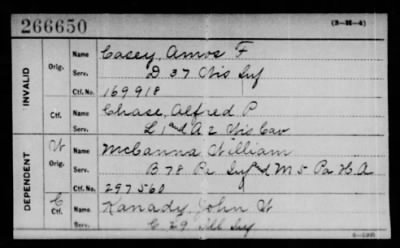 266650
(3-25-4)
INVALID
Orig.
Name Casey, Amos F
Serv. D 37 Wis Inf
Ctf. No. 169918
Ctf.
Name Chase, Alfred P
Serv. L 1st & A 2 Wis Cav
DEPENDENT
W Orig.
Name McCanna William
Serv. B 78 Pa Inf & M 5 Pa H A
Ctf. No. 297560
C Ctf.
Name Kanady John W
Serv. C 29 Ill Inf